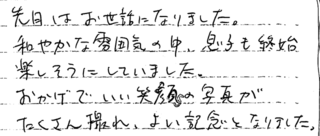 先日はお世話になりました。
和やかな雰囲気の中、息子も終始
楽しそうにしていました。
おかげでいい笑顔の写真が
たくさん撮れ、よい記念となりました。